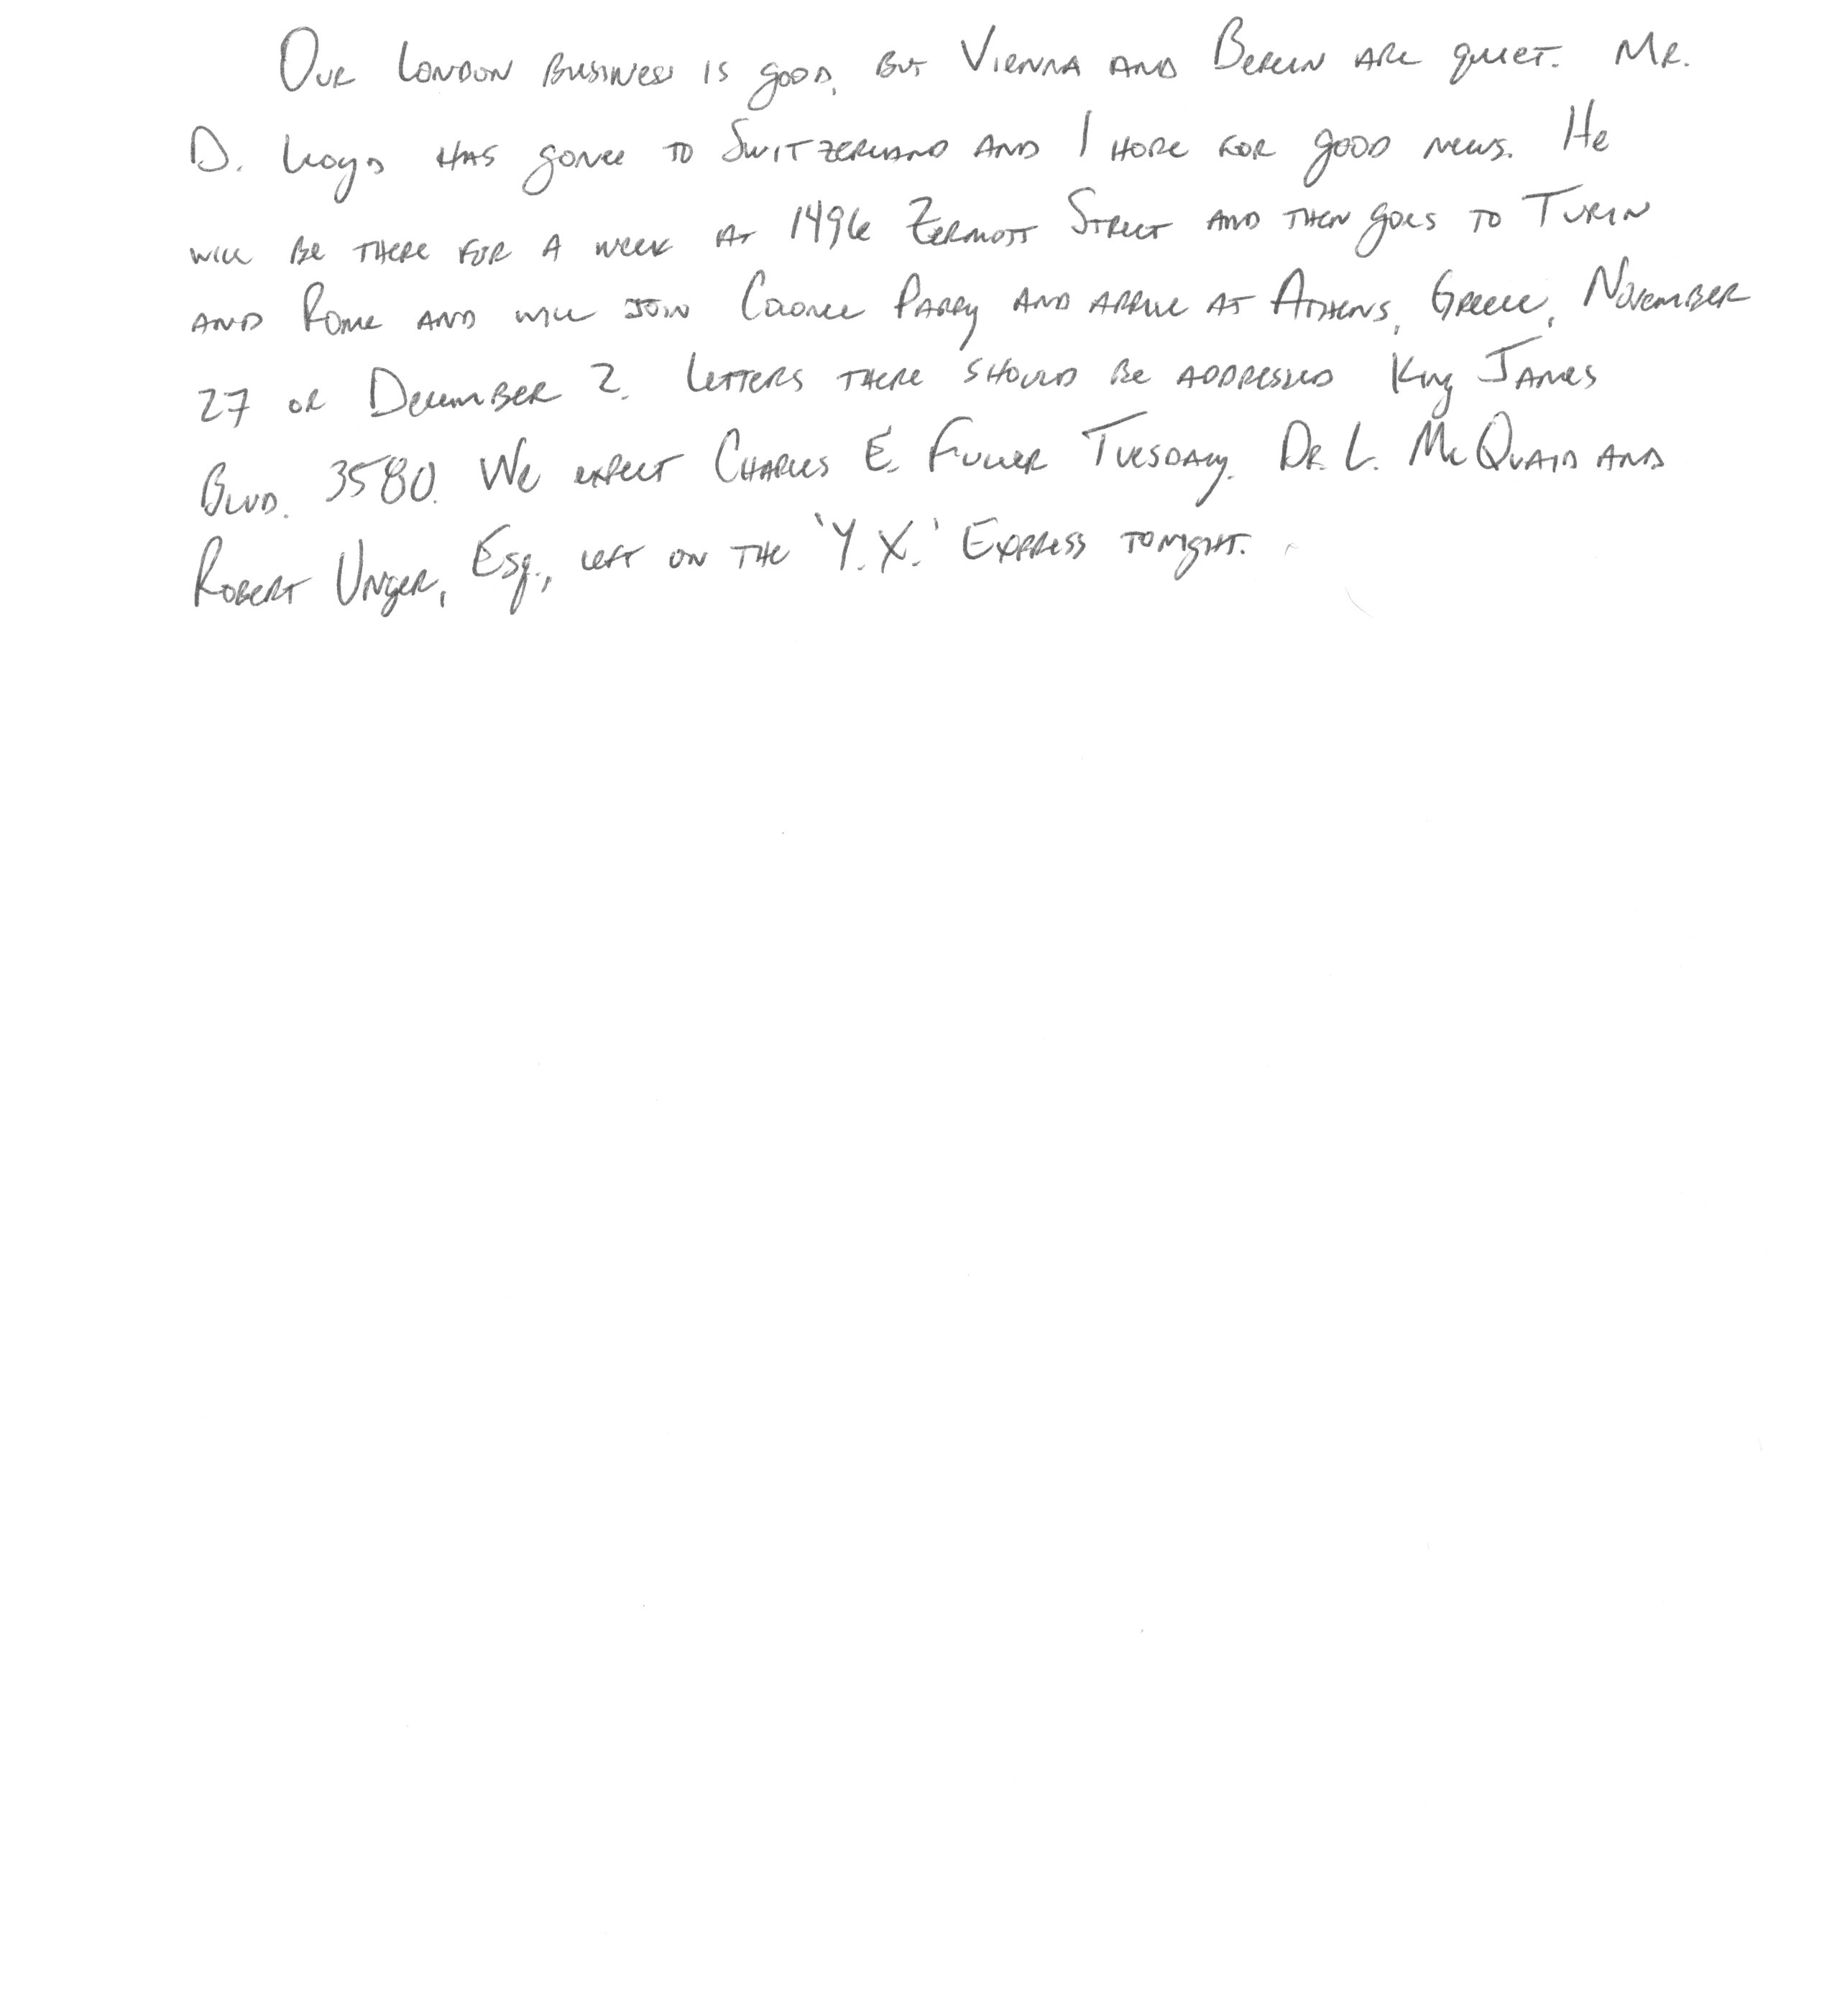 Our London business is good, but Vienna and Berlin are quiet. Mr.
D. Lloyd has gone to Switzerland and I hope for good news. He
will be there for a week at 1496 Zermott Street and then goes to Turin
and Rome and will join Colonel Parry and arrive at Athens, Greece, November
27 or December 2. Letters there should be addressed King James
Blvd. 3580. We expect Charles E. Fuller Tuesday. Dr. L. McQuaid and
Robert Unger, Esq., left on the 'Y.X.' Express tonight.